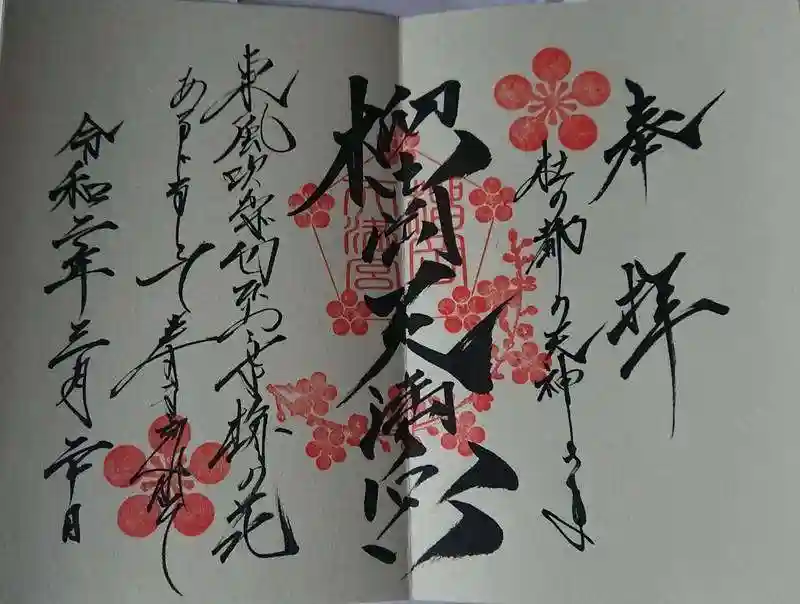 奉拝
杜の都の天神さま
榴岡天満宮
榴岡天満宮
東風吹かば匂ひおこせよ梅の花
あるじなしとて春
令和二年三月二十日